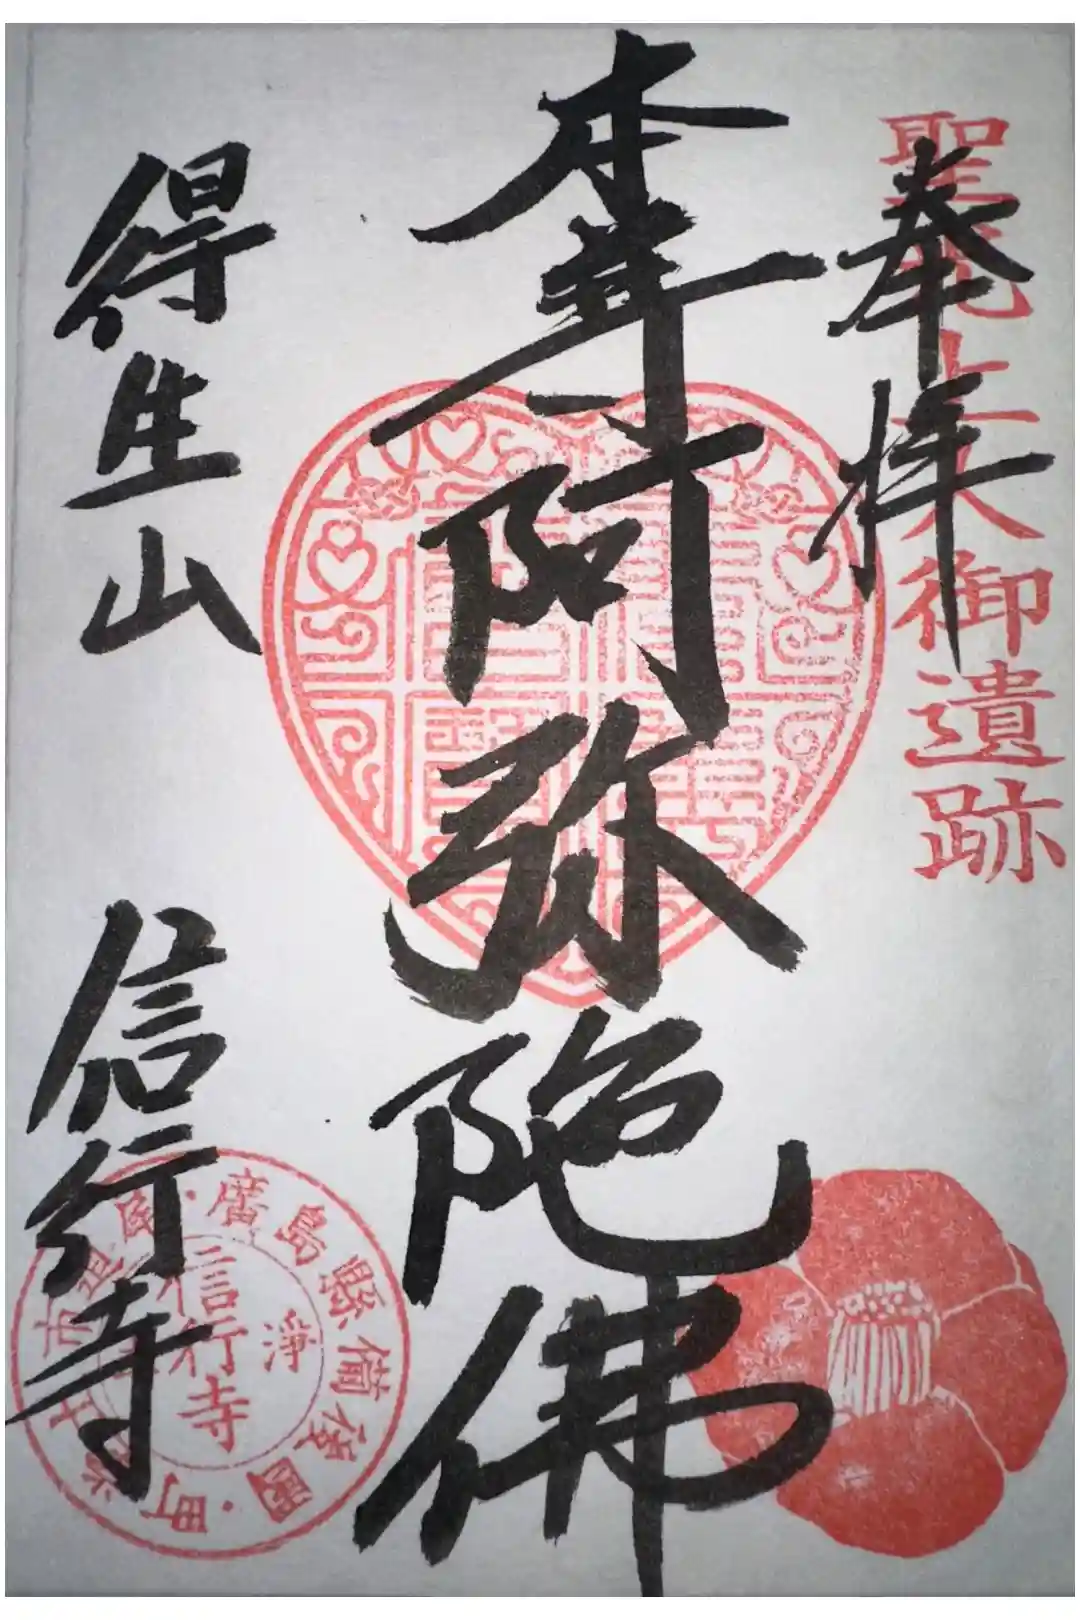 聖光上人御遺跡
奉拝
本尊阿弥陀佛
得生山 信行寺
廣島縣備後國
浄
信行寺